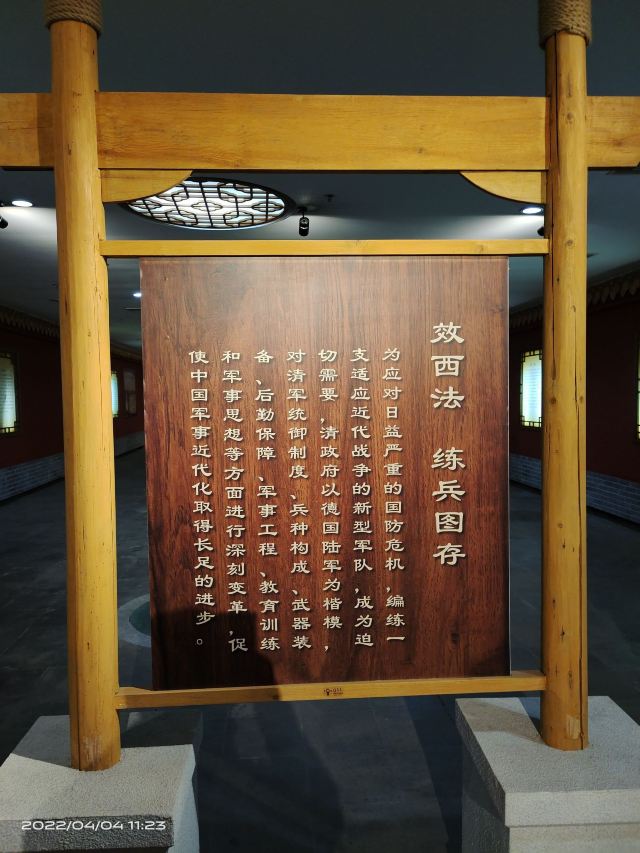 效西法 练兵图存
为应对日益严重的国防危机,编练一
支适应近代战争的新型军队,成为迫
切需要,清政府以德国陆军为楷模,
对清军统御制度、兵种构成、武器装
备、后勤保障、军事工程、教育训练
和军事思想等方面进行深刻变革,促
使中国军事近代化取得长足的进步。
2022/04/04 11:23